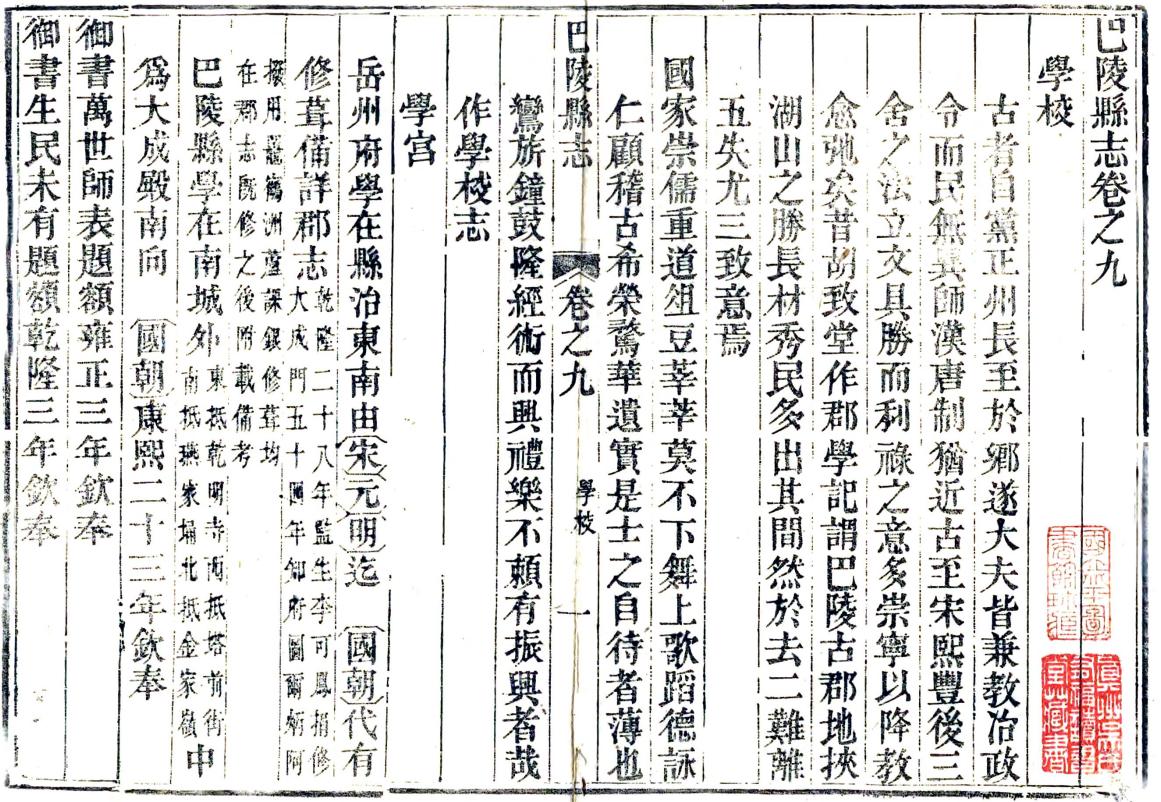 巴陵縣志卷之九
學校
古者自黨正州長至於鄉遂大夫皆兼教治政
令而民無異師漢唐制猶近古至宋熙豐後三
舍之法立文具勝而利祿之意多崇寧以降教
愈弛矣昔胡致堂作郡學記謂巴陵古郡地挾
湖山之勝長材秀民多出其間然於去二難離
五失尤三致意焉
國家崇儒重道俎豆莘莘莫不下舞上歌蹈德詠
仁顧稽古希榮騖華遺實是士之自待者薄也
巴陵縣志 卷之九 學校 一
鸞旂鐘鼓隆經術而興禮樂不賴有振興者哉
作學校志
學宮
岳州府學在縣治東南由宋元明迄 國朝代有
修葺備詳郡志乾隆二十八年監生李可鳳捐修
大成門五十圍年知府圖爾炳阿
撥用鶴洲蘆課銀修葺均
在郡志既修之後附載備考
巴陵縣學在南城外東抵乾明寺西抵塔前街
南抵燕家埇北抵金家嶺中
為大成殿南向 國朝康熙二十三年欽奉
御書萬世師表題額雍正三年欽奉
御書生民未有題額乾隆三年欽奉